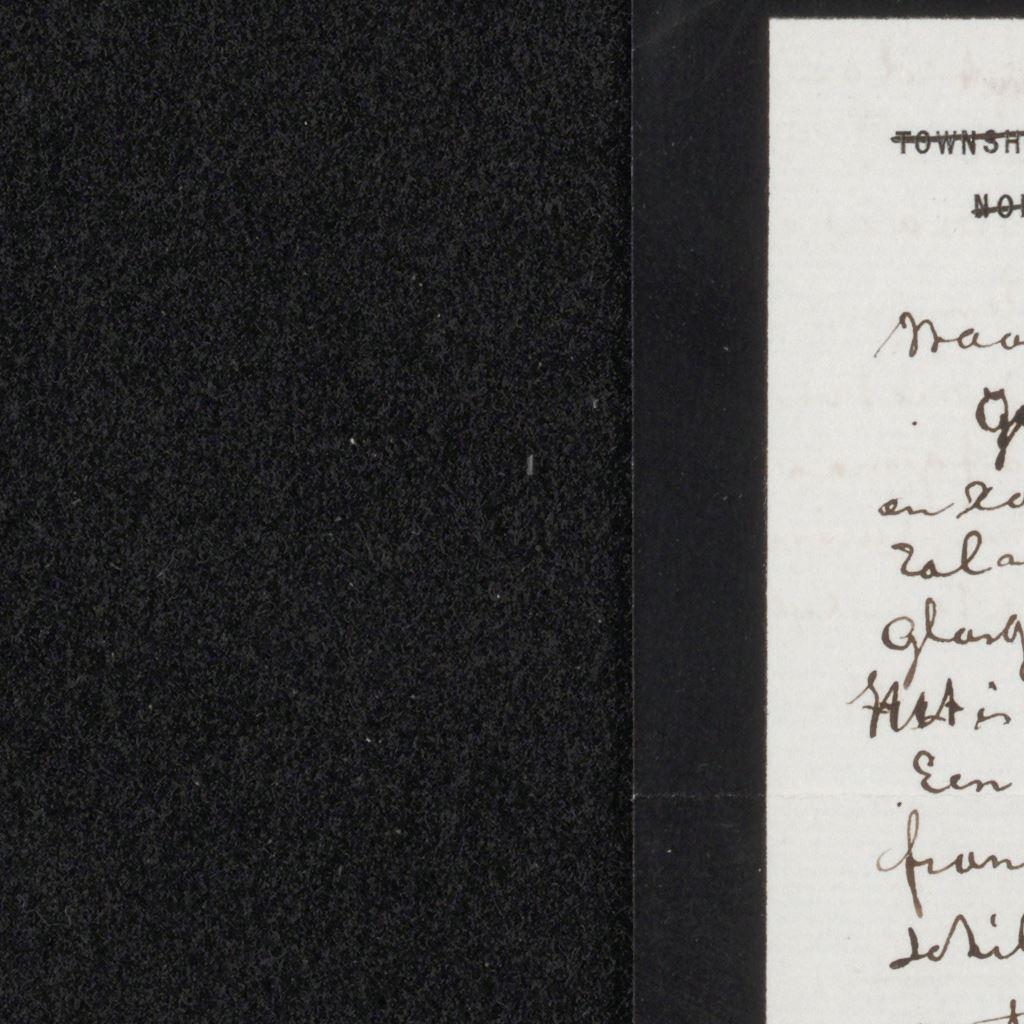 TOWNSH
NO
Waa
en zo
zal a
Glasg
Het is
Een
fran
schil